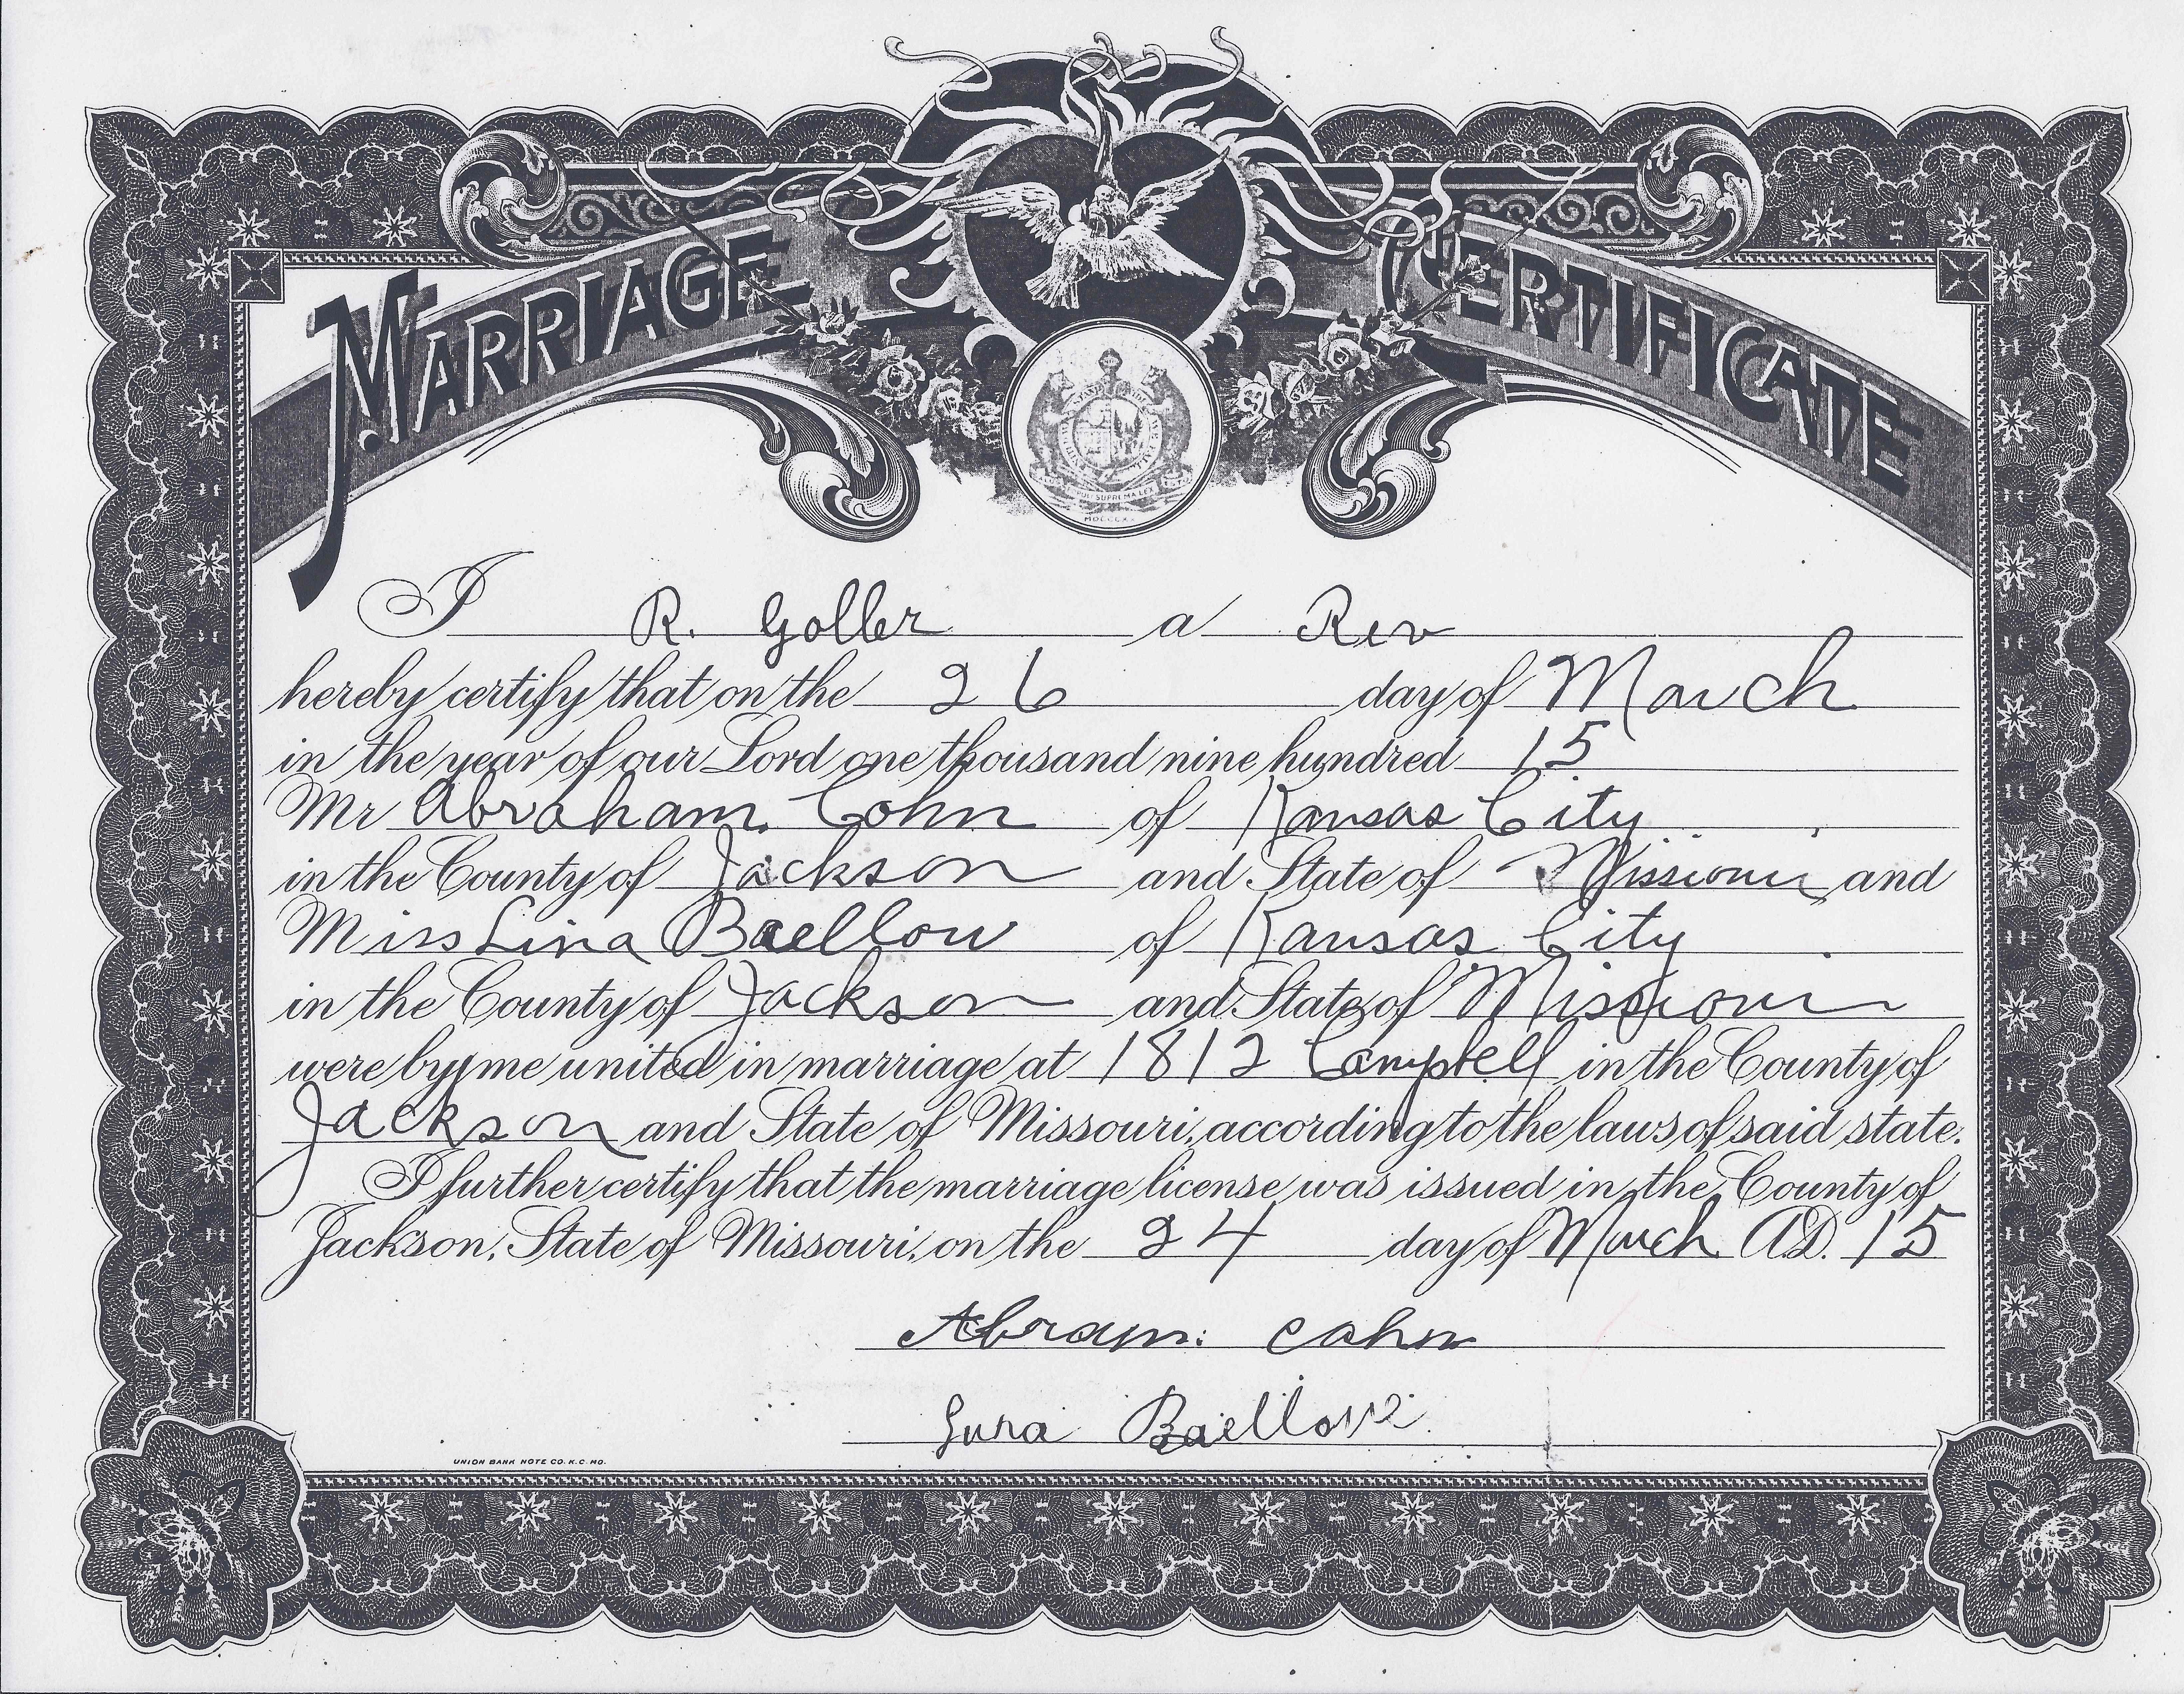 MARRIAGE CERTIFICATE
I R. Goller a Rev
hereby certify that on the 26 day of March
in the year of our Lord one thousand nine hundred 15
Mr Abraham Cohn of Kansas City
in the County of Jackson and State of Missouri and
Miss Lina Baellow of Kansas City
in the County of Jackson and State of Missouri
were by me united in marriage at 1812 Campbell in the County of
Jackson and State of Missouri, according to the laws of said state.
I further certify that the marriage license was issued in the County of
Jackson, State of Missouri, on the 24 day of March A.D. 15
Abram: Cahn
Baellow
UNION BANK NOTE CO. K.C. MO.